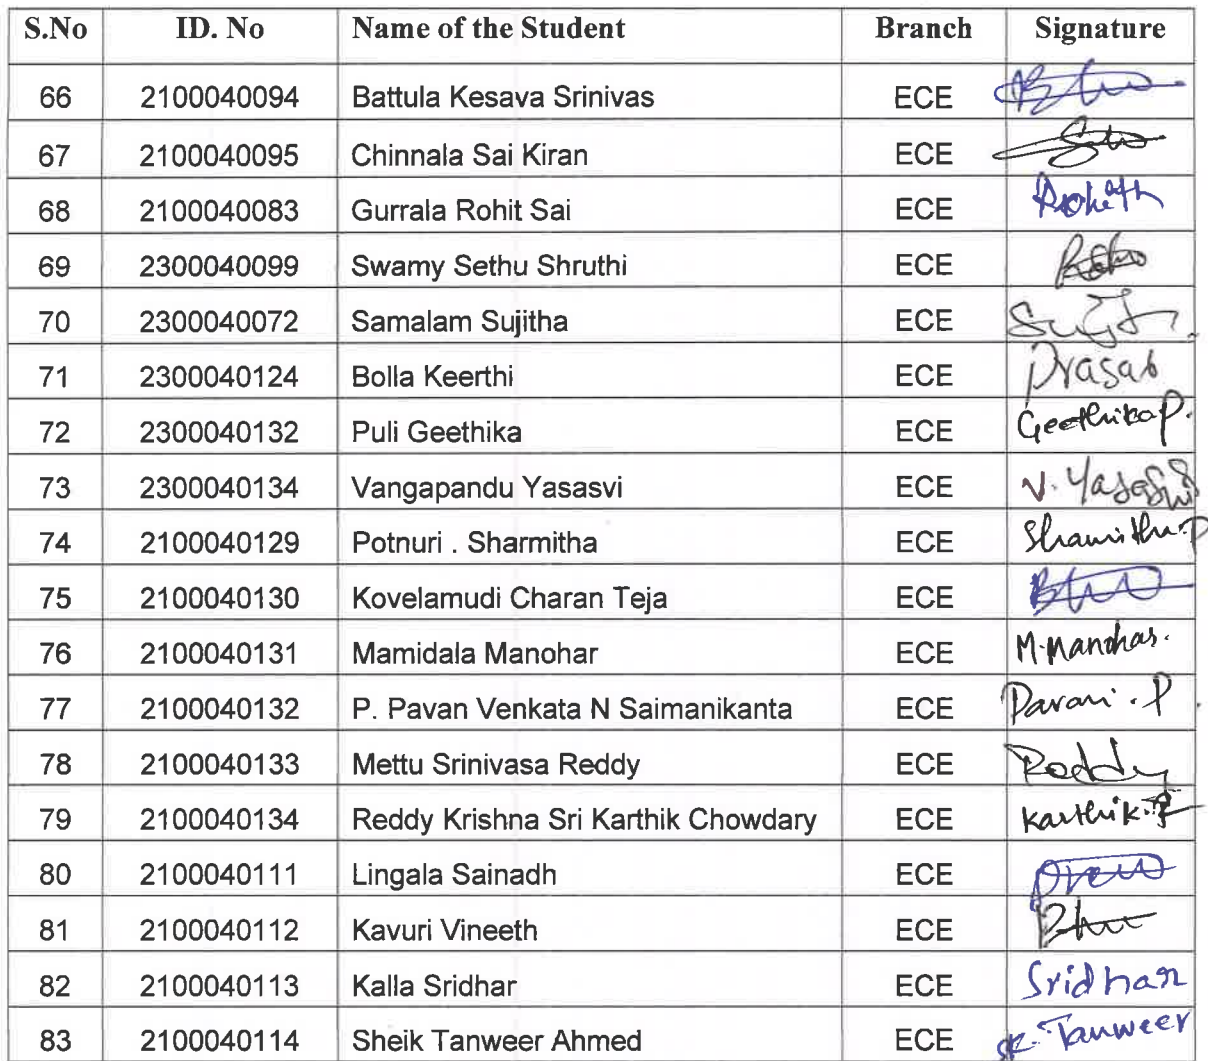 S.No ID. No Name of the Student Branch Signature
66 2100040094 Battula Kesava Srinivas ECE
67 2100040095 Chinnala Sai Kiran ECE
68 2100040083 Gurrala Rohit Sai ECE
69 2300040099 Swamy Sethu Shruthi ECE
70 2300040072 Samalam Sujitha ECE
71 2300040124 Bolla Keerthi ECE Prasad
72 2300040132 Puli Geethika ECE Geethika P.
73 2300040134 Vangapandu Yasasvi ECE V. Yasasvi
74 2100040129 Potnuri . Sharmitha ECE
75 2100040130 Kovelamudi Charan Teja ECE
76 2100040131 Mamidala Manohar ECE M. Manohar.
77 2100040132 P. Pavan Venkata N Saimanikanta ECE
78 2100040133 Mettu Srinivasa Reddy ECE Reddy
79 2100040134 Reddy Krishna Sri Karthik Chowdary ECE Karthik
80 2100040111 Lingala Sainadh ECE
81 2100040112 Kavuri Vineeth ECE
82 2100040113 Kalla Sridhar ECE Sridhar
83 2100040114 Sheik Tanweer Ahmed ECE SK. Tanweer